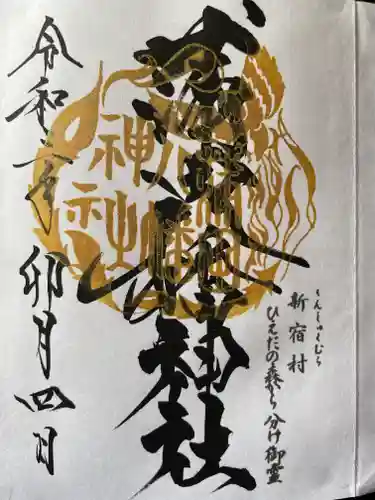 新宿村
しんしゅくむら
ひえだの森から分け御霊
八幡神社
蒲田
八幡
神社
令和二年卯月四日